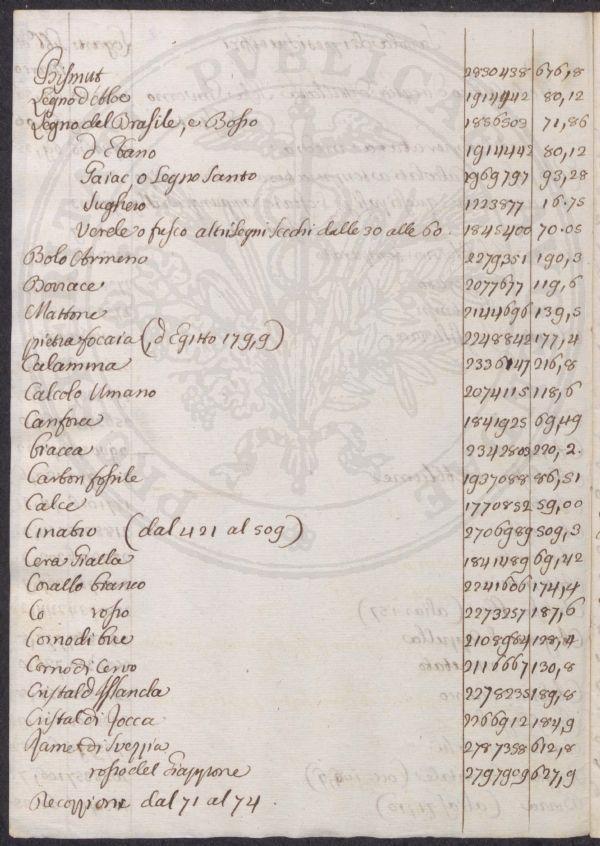 Bismut 2830438 676,8
Legno d'Aloe 1914442 80,12
Legno del Brasile, e Bosso 1886303 71,86
d'Ebano 1914442 80,12
Gaiac o Legno Santo 1969797 93,28
Sughero 1223877 16.75
Verde o fresco altri legni secchi dalle 30 alle 60. 1845400 70.05
Bolo Armeno 2279351 190,3
Borrace 2077677 119,6
Mattone 2144696 139,5
pietra focaia (, d'Egitto 179,9) 2248842 177,4
Calamina 2336147 216,8
Calcolo Umano 2074115 118,6
Canfora 1841925 69,49
Creacea 2342803 220,2.
Carbon fossile 1937088 86,51
Calce 1770852 59,00
Cinabro (dal 421 al 509) 2706989 509,3
Cera Gialla 1841489 69,42
Corallo bianco 2241606 174,4
Co rosso 2273257 187,6
Corno di bue 2108984 128,4
Corno di Cervo 2116667 130,8
Cristal d'Islanda 2278235 189,8
Cristal di Rocca 2266912 184,9
Rame di Svezzia 2787358 612,8
rosso del Giappone 2797909 627,9
Recozzione dal 71 al 74.
PVBLICA